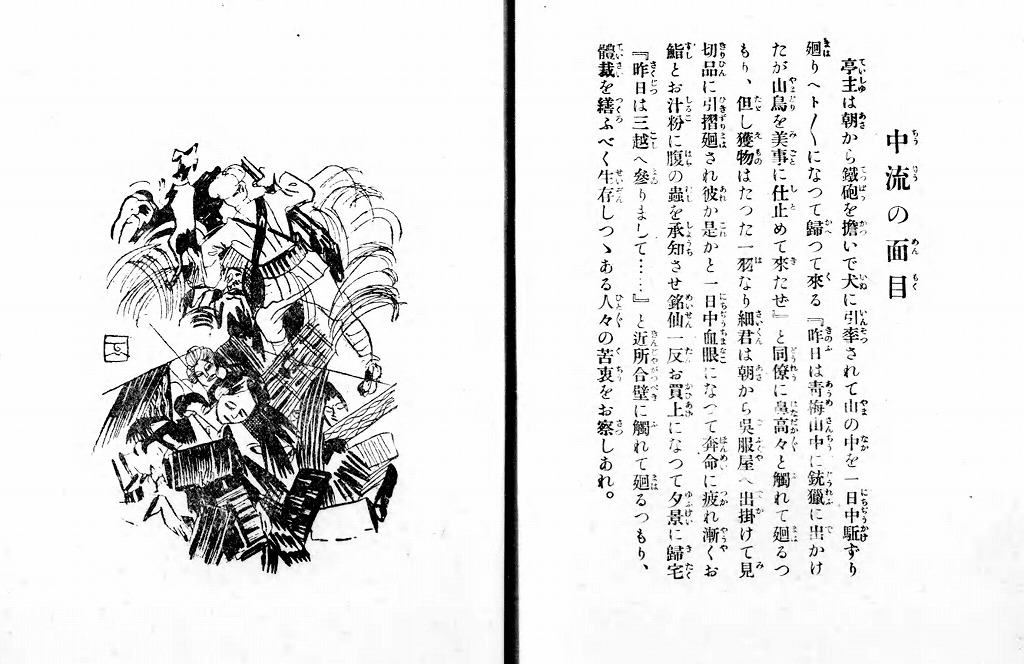 中流の面目
亭主は朝から鐵砲を擔いで犬に引率されて山の中を一日中駈ずり
廻りヘト〱になつて歸つて來る『昨日は靑梅山中に銃獵に出かけ
たが山鳥を美事に仕止めて來たぜ』と同僚に鼻高々と觸れて廻るつ
もり、但し獲物はたつた一羽なり細君は朝から呉服屋へ出掛けて見
切品に引摺廻され彼か是かと一日中血眼になつて奔命に疲れ漸くお
鮨とお汁粉に腹の蟲を承知させ銘仙一反お買上になつて夕景に歸宅
『昨日は三越へ參りまして……』と近所合壁に觸れて廻るつもり、
體裁を繕ふべく生存しつゝある人々の苦衷をお察しあれ。